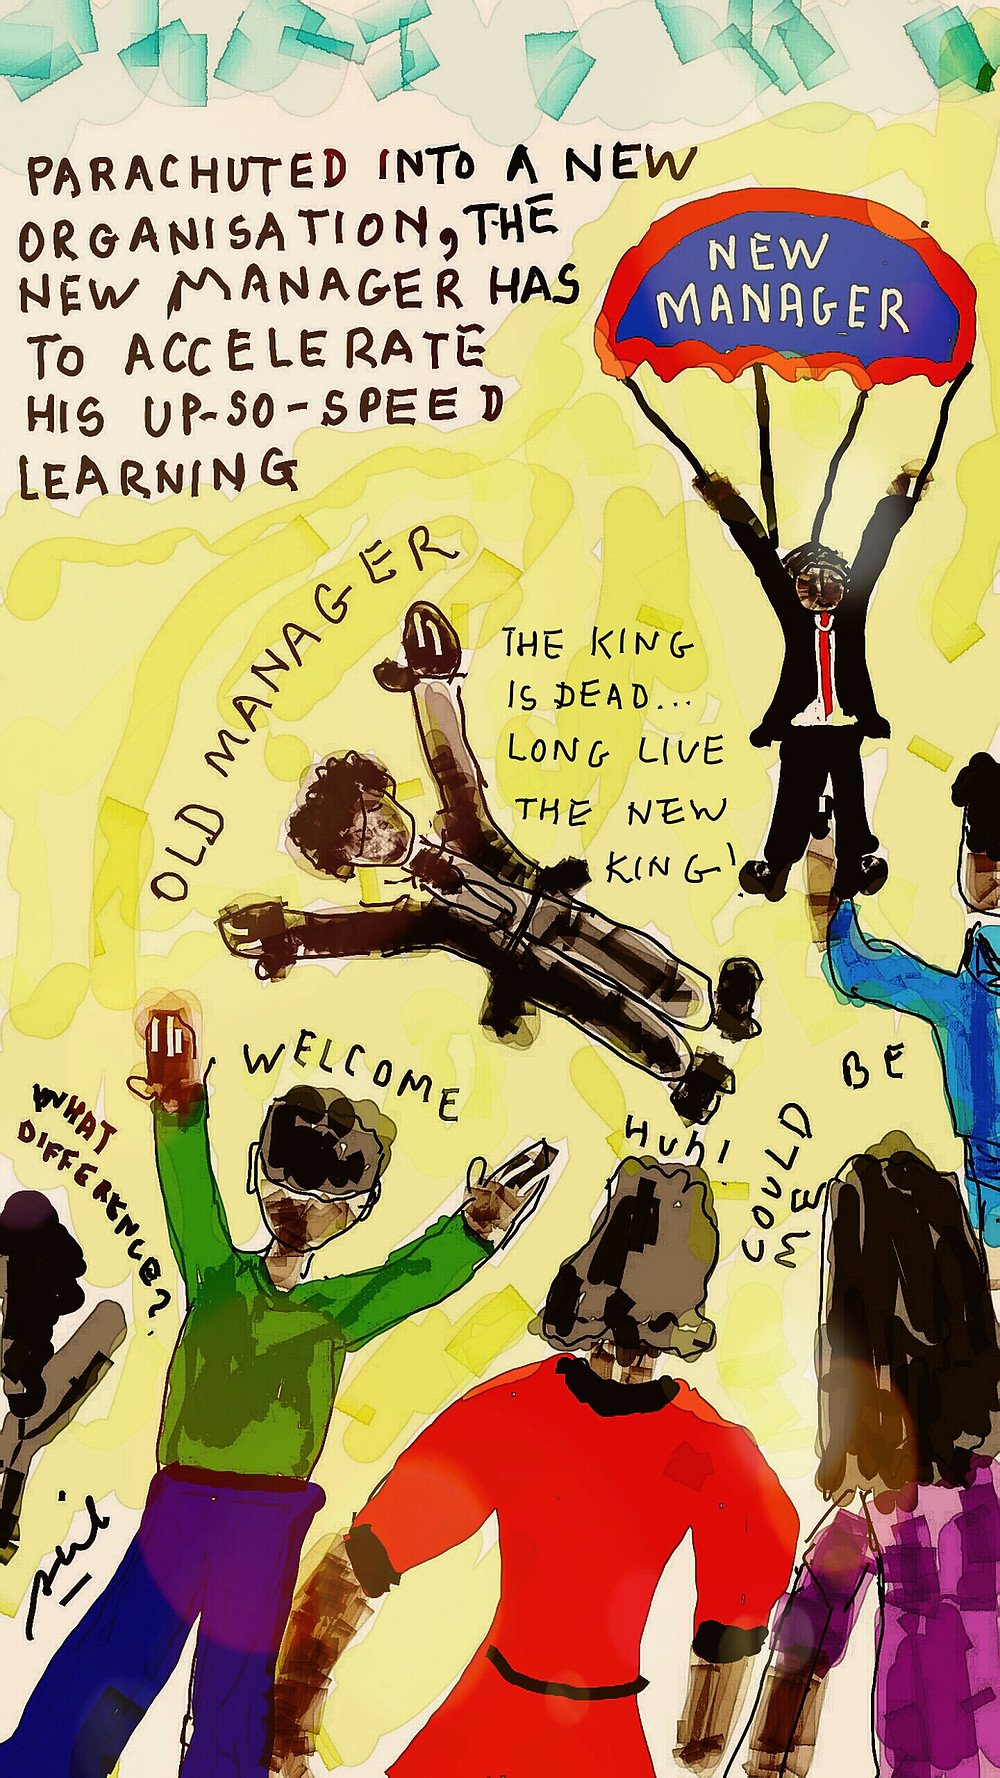 PARACHUTED INTO A NEW
ORGANISATION, THE
NEW MANAGER HAS
TO ACCELERATE
HIS UP-SO-SPEED
LEARNING
NEW
MANAGER
OLD MANAGER
THE KING
IS DEAD...
LONG LIVE
THE NEW
KING!
WELCOME
WHAT
DIFFERENCE?
HUH!
COULD
BE
ME